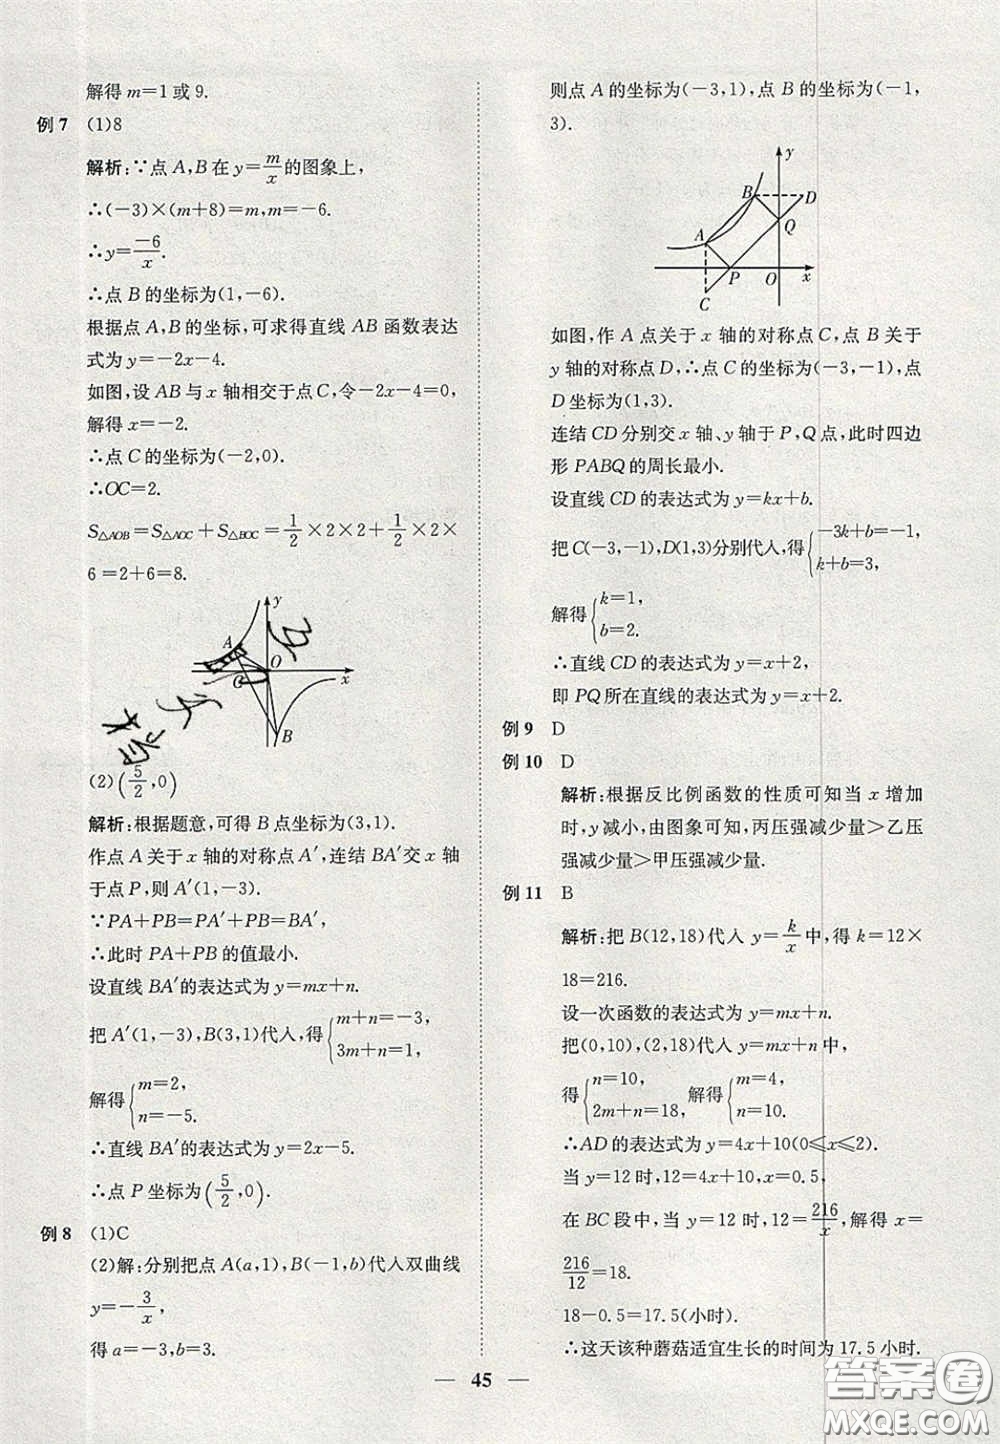 解得 m=1 或 9.
例 7 (1)8
解析:∵点 A,B 在 y=m/x 的图象上,
∴(-3)×(m+8)=m,m=-6.
∴y=-6/x.
∴点 B 的坐标为(1,-6).
根据点 A,B 的坐标,可求得直线 AB 函数表达
式为 y=-2x-4.
如图,设 AB 与 x 轴相交于点 C,令-2x-4=0,
解得 x=-2.
∴点 C 的坐标为(-2,0).
∴OC=2.
S△AOB=S△AOC+S△BOC=1/2×2×2+1/2×2×
6=2+6=8.
y
A
O
C
x
B
(2)(5/2,0)
解析:根据题意,可得 B 点坐标为(3,1).
作点 A 关于 x 轴的对称点 A′,连结 BA′交 x 轴
于点 P,则 A′(1,-3).
∵PA+PB=PA′+PB=BA′,
∴此时 PA+PB 的值最小.
设直线 BA′的表达式为 y=mx+n.
把 A′(1,-3),B(3,1)代入,得{m+n=-3,
3m+n=1,
解得{m=2,
n=-5.
∴直线 BA′的表达式为 y=2x-5.
∴点 P 坐标为(5/2,0).
例 8 (1)C
(2)解:分别把点 A(a,1),B(-1,b)代入双曲线
y=-3/x,
得 a=-3,b=3.
则点 A 的坐标为(-3,1),点 B 的坐标为(-1,
3).
y
B
D
Q
A
P
O
x
C
如图,作 A 点关于 x 轴的对称点 C,点 B 关于
y 轴的对称点 D,∴点 C 的坐标为(-3,-1),点
D 坐标为(1,3).
连结 CD 分别交 x 轴、y 轴于 P,Q 点,此时四边
形 PABQ 的周长最小.
设直线 CD 的表达式为 y=kx+b.
把 C(-3,-1),D(1,3)分别代入,得{-3k+b=-1,
k+b=3,
解得{k=1,
b=2.
∴直线 CD 的表达式为 y=x+2,
即 PQ 所在直线的表达式为 y=x+2.
例 9 D
例 10 D
解析:根据反比例函数的性质可知当 x 增加
时,y 减小,由图象可知,丙压强减少量>乙压
强减少量>甲压强减少量.
例 11 B
解析:把 B(12,18)代入 y=k/x 中,得 k=12×
18=216.
设一次函数的表达式为 y=mx+n.
把(0,10),(2,18)代入 y=mx+n 中,
得{n=10,
2m+n=18, 解得{m=4,
n=10.
∴AD 的表达式为 y=4x+10(0≤x≤2).
当 y=12 时,12=4x+10,x=0.5,
在 BC 段中,当 y=12 时,12=216/x,解得 x=
216/12=18.
18-0.5=17.5(小时).
∴这天该种蘑菇适宜生长的时间为 17.5 小时.
45
答案圈
MXQE.COM